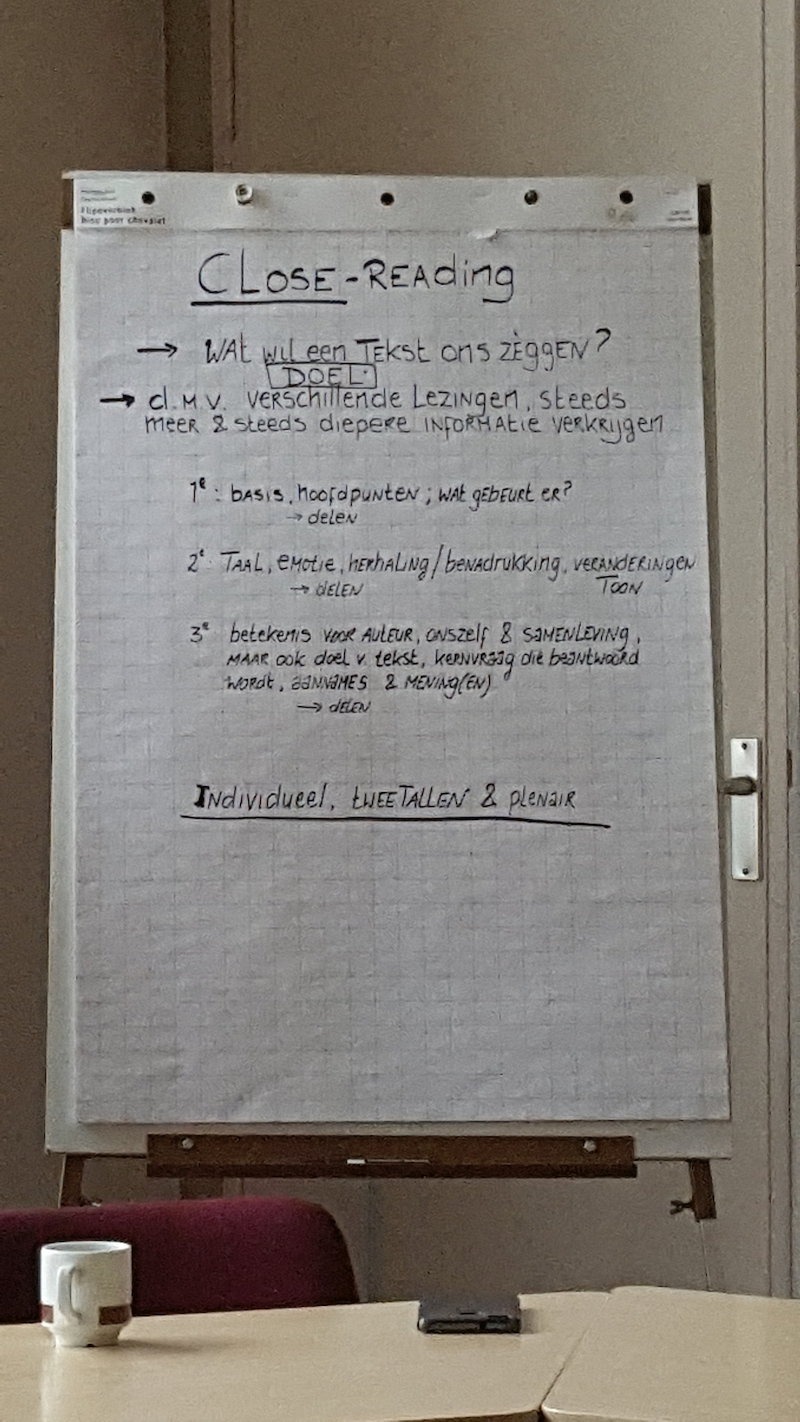 Flipoverblok
Bloc pour chevalet
CLOSE-READing
→ WAt wil een TEKST ons ZÈGGEN?
DOEL:
→ d.m.v. verschillende Lezingen, steeds
meer & steeds diepere informatie verkrijgen
1e: basis, hoofdpunten; wat gebeurt er?
→ delen
2e: TAAL, emotie, herhaling/benadrukking, veranderingen
Toon
→ delen
3e betekenis voor auteur, onszelf & samenleving,
maar ook doel v. tekst, kernvraag die beantwoord
wordt, aannames & mening(en)
→ delen
Individueel, tweetallen & plenair